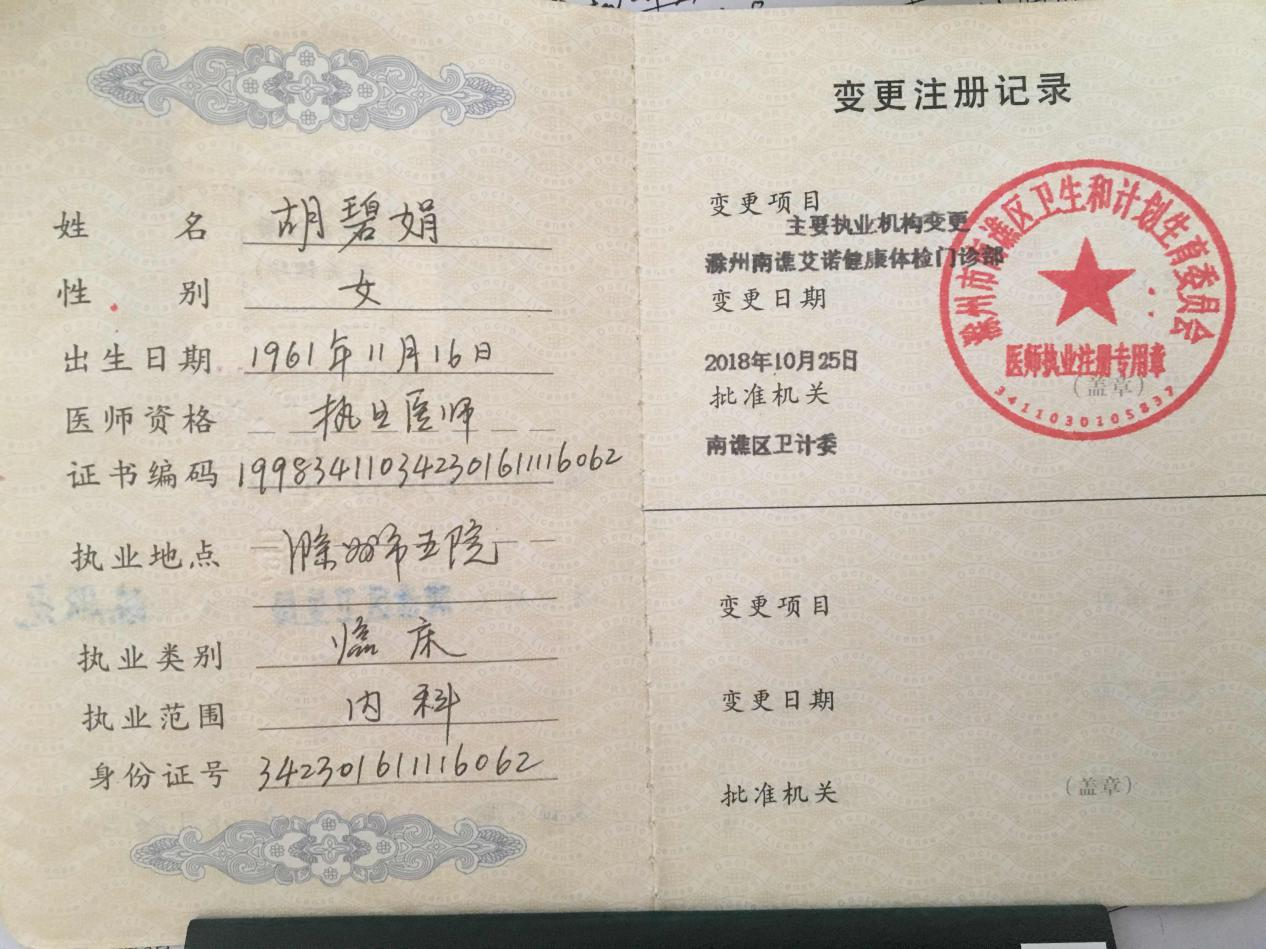 姓名 胡碧娟
性别 女
出生日期 1961年11月16日
医师资格 执业医师
证书编码 199834110342301611116062
执业地点 滁州市五院
执业类别 临床
执业范围 内科
身份证号 342301611116062
变更注册记录
变更项目
主要执业机构变更
滁州南谯艾诺健康体检门诊部
变更日期
2018年10月25日
批准机关
南谯区卫计委
滁州市南谯区卫生和计划生育委员会
医师执业注册专用章
(盖章)
3411030105837
变更项目
变更日期
批准机关
(盖章)